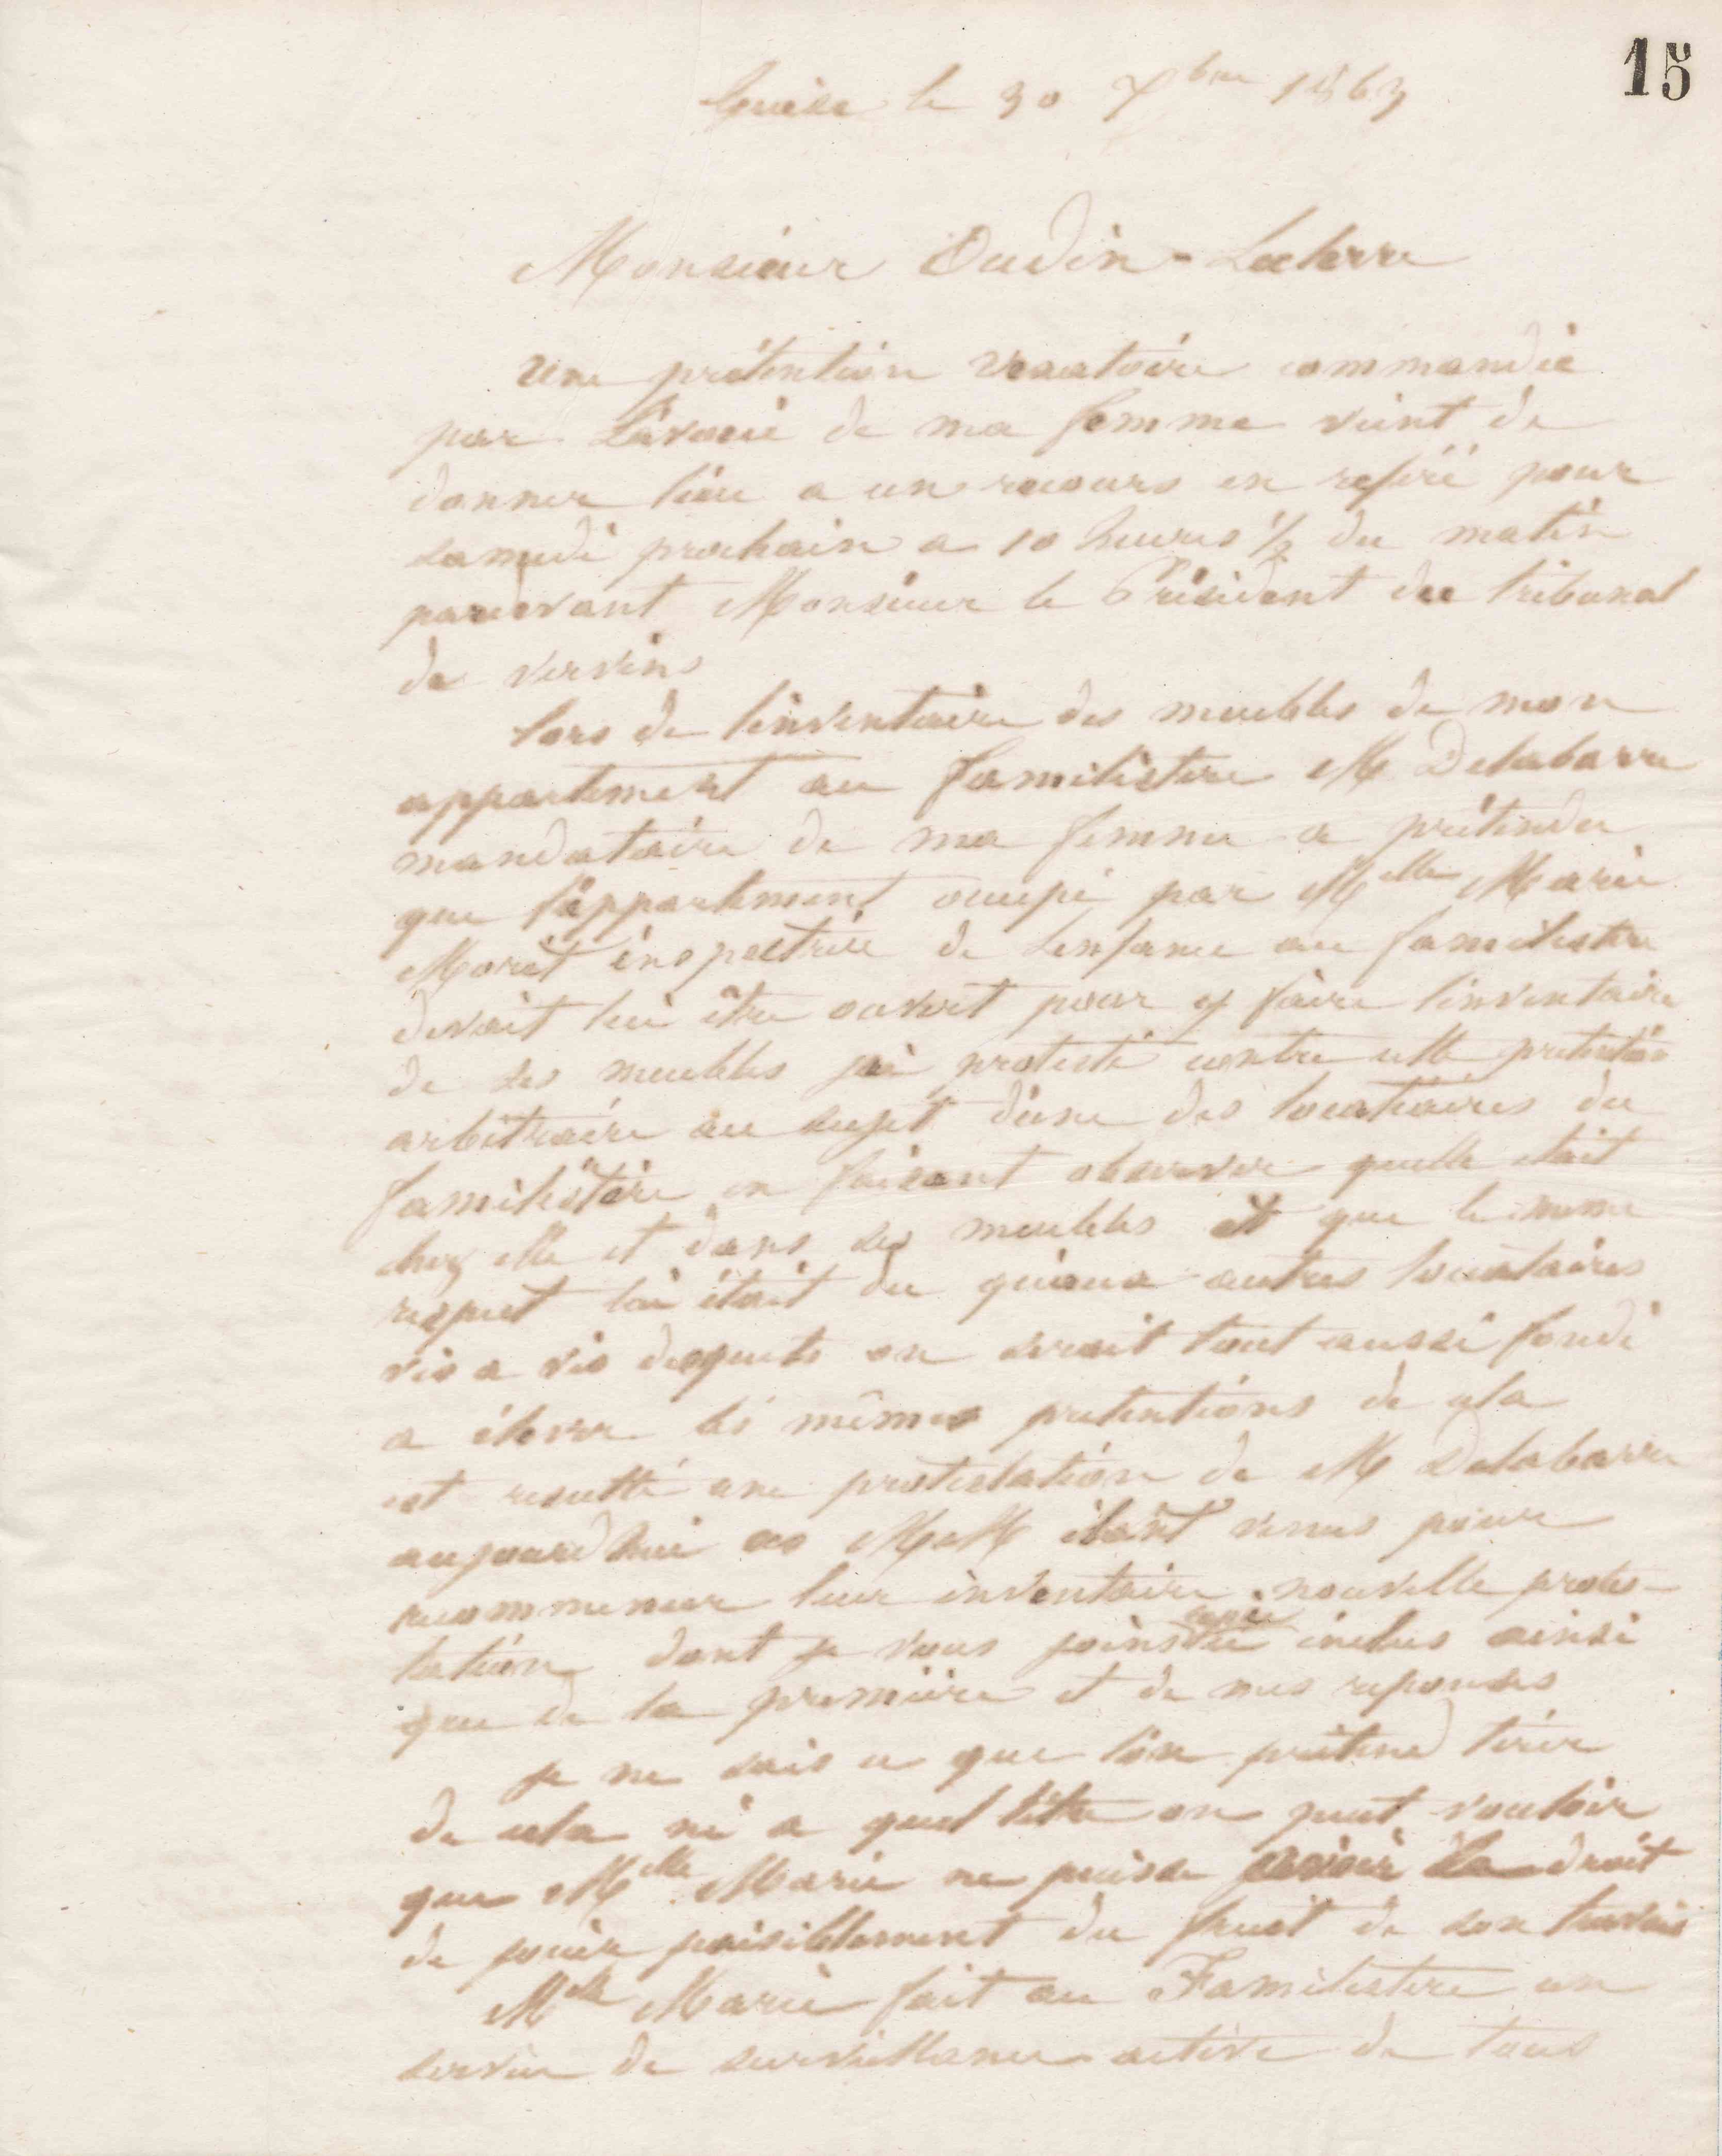 15
Guise le 30 Xbre 1863
Monsieur Oudin-Leclerre
Une prétention vexatoire commandée
par L'avoué de ma femme vient de
donner lieu a un recours en referé pour
samedi prochain a 10 heures ½ du matin
pardevant Monsieur le Président du tribunal
de vervins
lors de linventaire des meubles de mon
appartement au familistere M Delabarre
mandataire de ma femme a prétendu
que l'appartement occupé par Melle Marie
Moret inspectrice de Lenfance au familistere
devait lui être ouvert pour y faire linventaire
de ses meubles jai protesté contre cette pretention
arbitraire au sujet dune des locataires du
familistère en faisant observer quelle etait
chez elle et dans ses meubles et que le meme
respect lui était du quaux autres locataires
vis a vis desquels on serait tout aussi fondé
a élever les mêmes pretentions de cela
est resulté une protestation de M Delabarre
aujourdhui ces MM étant venus pour
recommencer leur inventaire nouvelle protes-
tation dont je vous joins copie inclus ainsi
que de la première et de mes reponses
je ne sais ce que lon prétend tirer
de cela ni a quel titre on peut vouloir
que Melle Marie ne puisse avoir le droit
de jouir paisiblement du fruit de son travail
Melle Marie fait au Familistere un
service de surveillance active de tous